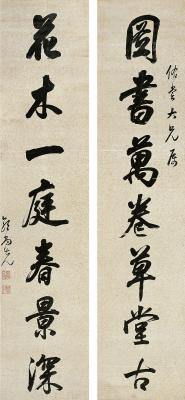 圖書萬卷草堂古
大兄屬
花木一庭春景深